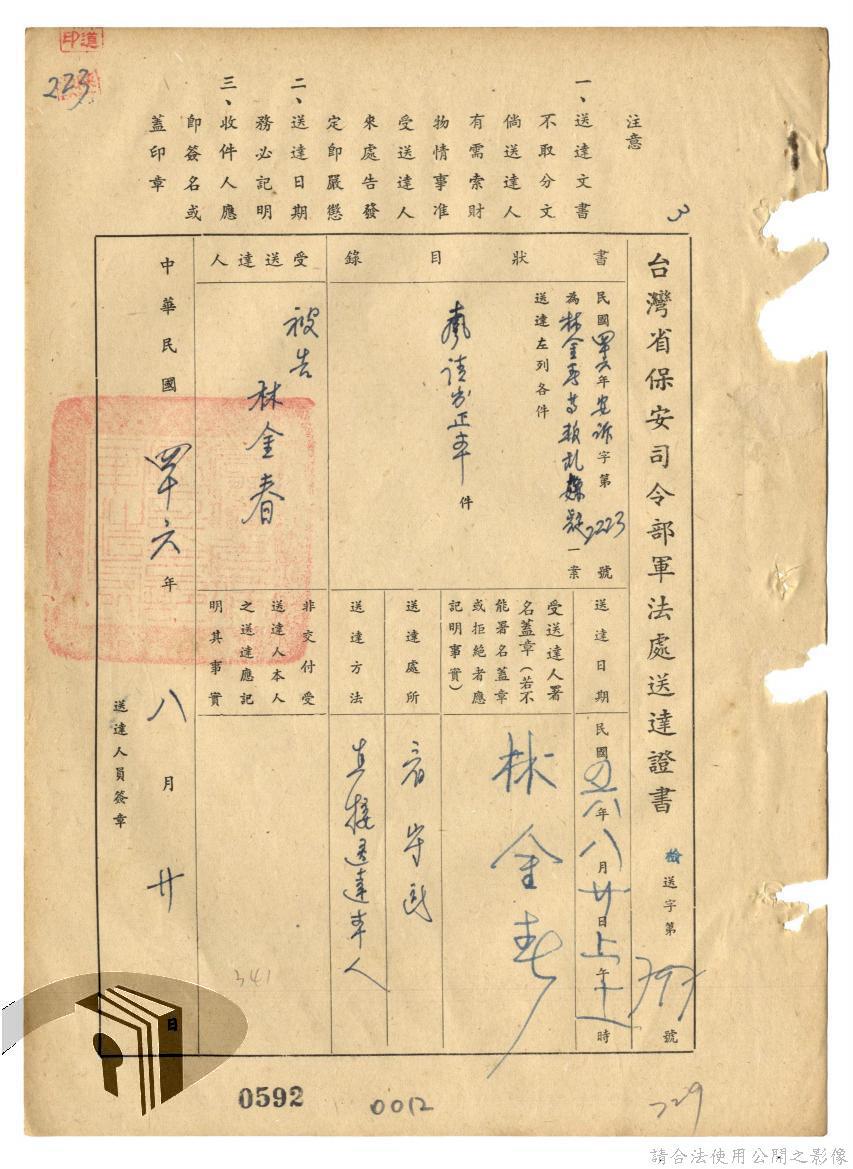 道
印
223
注意
一、送達文書
不取分文
倘送達人
有需索財
物情事准
受送達人
來處告發
定即嚴懲
二、送達日期
務必記明
三、收件人應
即簽名或
蓋印章
3
台灣省保安司令部軍法處送達證書
檢送字第
號
書狀目錄
民國四六年安訴字第2223號
為林金春等叛亂嫌疑一案
送達左列各件
件
受送達人
被告 林金春
送達日期
民國四六年八月廿日上午十一時
受送達人署
名蓋章(若不
能署名蓋章
或拒絕者應
記明事實)
林金春
送達處所
看守所
送達方法
直接送達本人
非交付受
送達人本人
之送達應記
明其事實
341
中華民國四十六年八月廿
送達人員簽章
0592
0012
729
請合法使用公開之影像